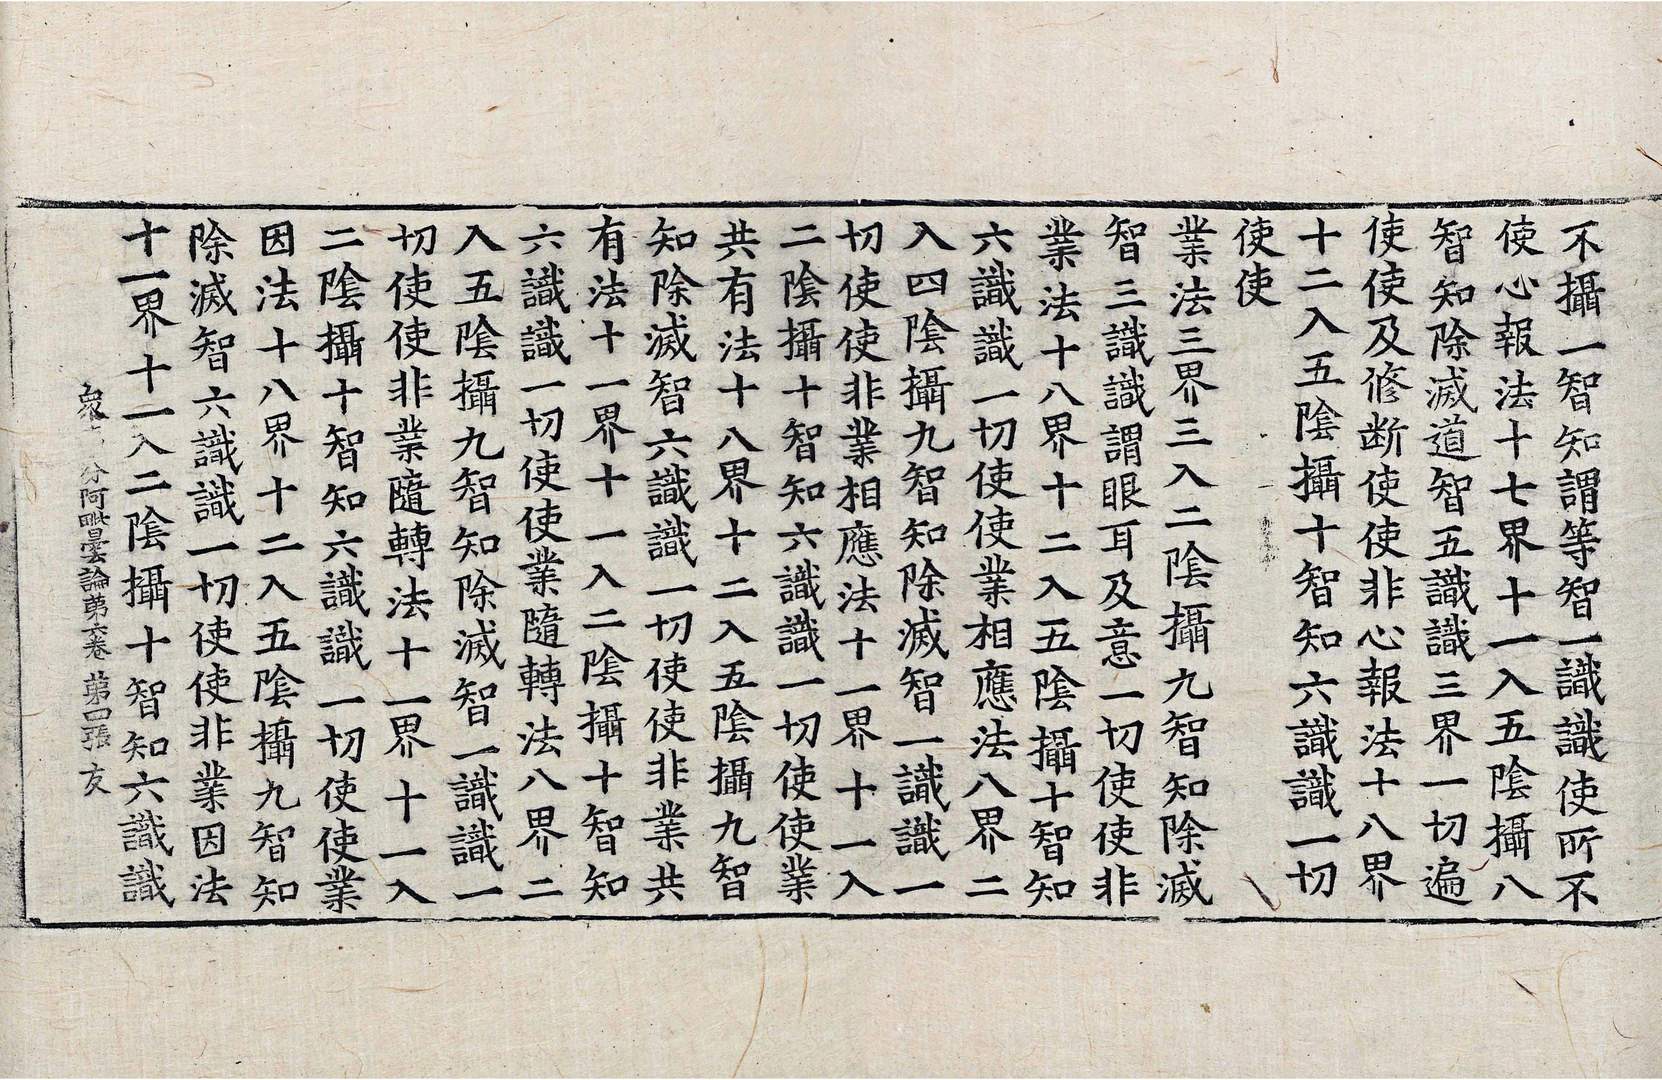 不攝一智知謂等智一識識使所不
使心報法十七界十一入五陰攝八
智知除滅道智五識識三界一切遍
使使及修断使使非心報法十八界
十二入五陰攝十智知六識識一切
使使
業法三界三入二陰攝九智知除滅
智三識識謂眼耳及意一切使使非
業法十八界十二入五陰攝十智知
六識識一切使使業相應法八界二
入四陰攝九智知除滅智一識識一
切使使非業相應法十一界十一入
二陰攝十智知六識識一切使使業
共有法十八界十二入五陰攝九智
知除滅智六識識一切使使非業共
有法十一界十一入二陰攝十智知
六識識一切使使業隨轉法八界二
入五陰攝九智知除滅智一識識一
切使使非業隨轉法十一界十一入
二陰攝十智知六識識一切使使業
因法十八界十二入五陰攝九智知
除滅智六識識一切使使非業因法
十一界十一入二陰攝十智知六識識
衆 分阿毗曇論第六卷 第四張 友